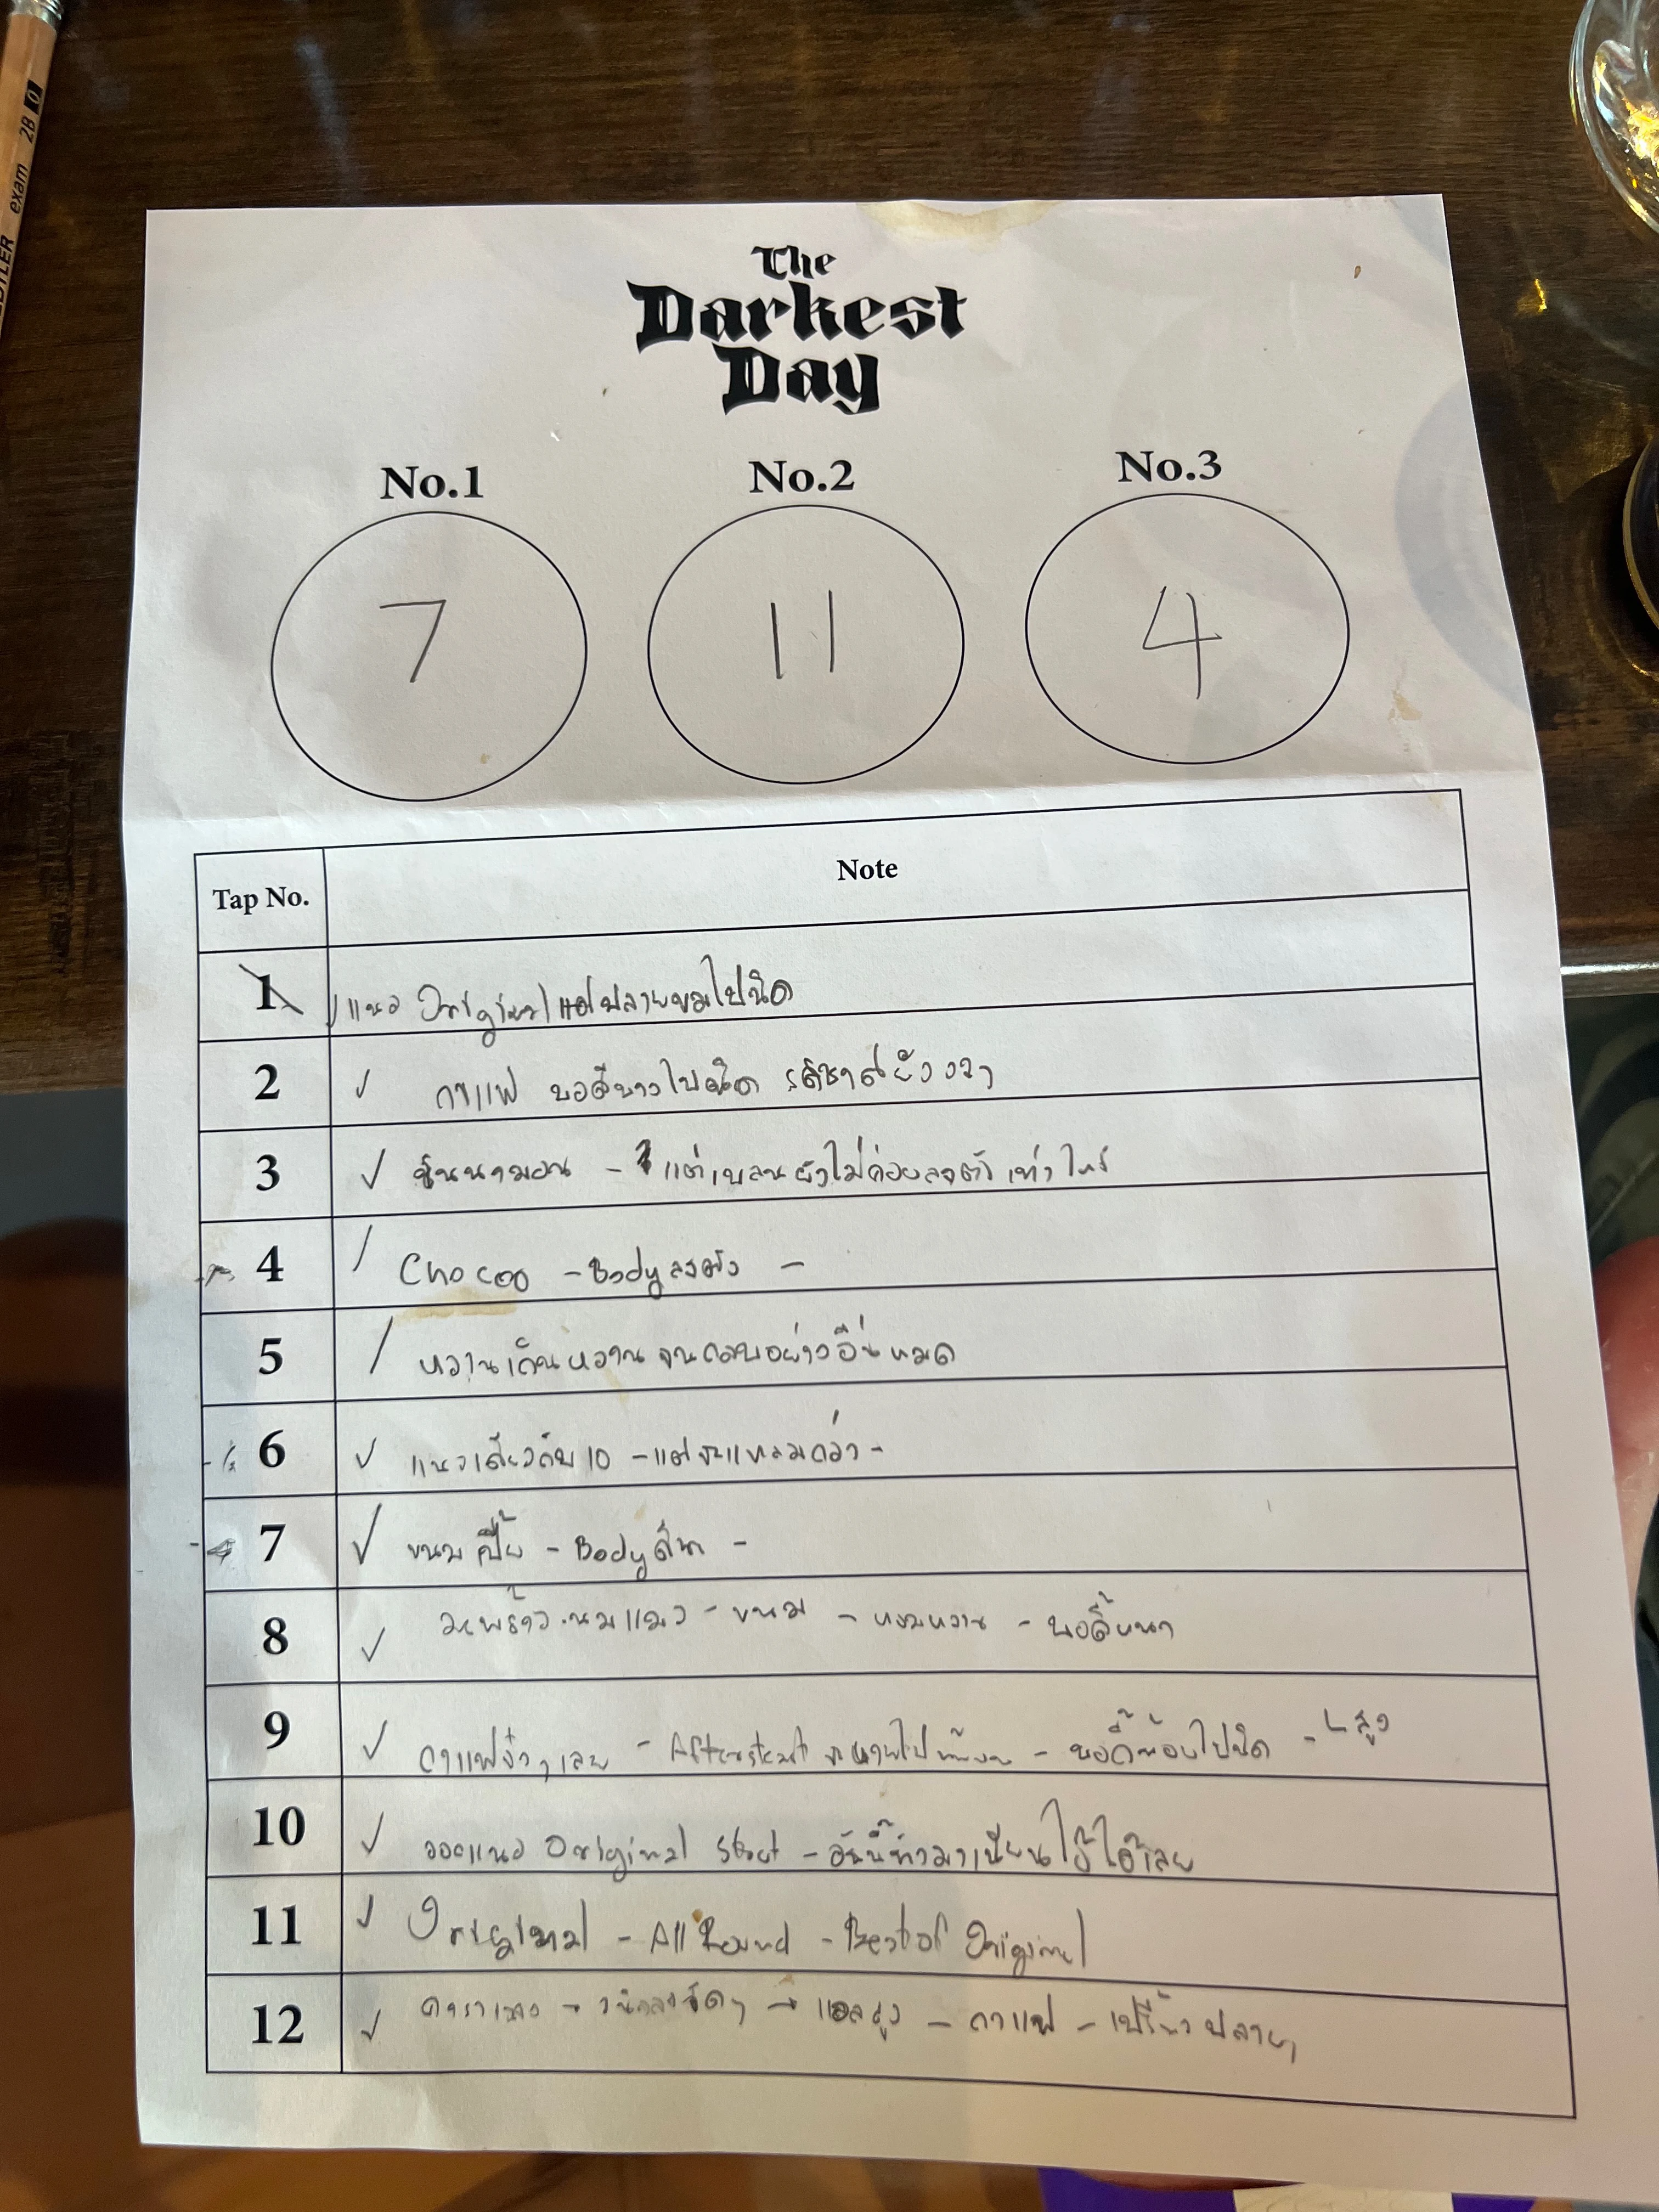 STAEDTLER exam 2B 0
The
Darkest
Day
No.1 No.2 No.3
7 11 4
Tap No. Note
1 แนว Original แต่ปลายขมไปนิด
2 กาแฟ บอดี้บางไปนิด รสชาติยังงงๆ
3 ซินนามอน - แต่เบลนยังไม่ค่อยลงตัวเท่าไหร่
4 Chocoo - Body ลงตัว -
5 หวานเกิน หวานจนกลบอย่างอื่นหมด
6 แนวเดียวกับ 10 - แต่จะแหลมกว่า -
7 ขนมเปี๊ย - Body ดีมาก -
8 มะพร้าว นมแมว - ขนม - หอมหวาน - บอดี้หนา
9 กาแฟจ๋าๆ เลย - บอดี้น้อยไปนิด - สูง
10 ออกแนว Original Stout - อันนี้ทำมาเนียนใช้ได้เลย
11 Original - All Round - Best of Original
12 - แอลสูง - กาแฟ - เปรี้ยวปลายๆ